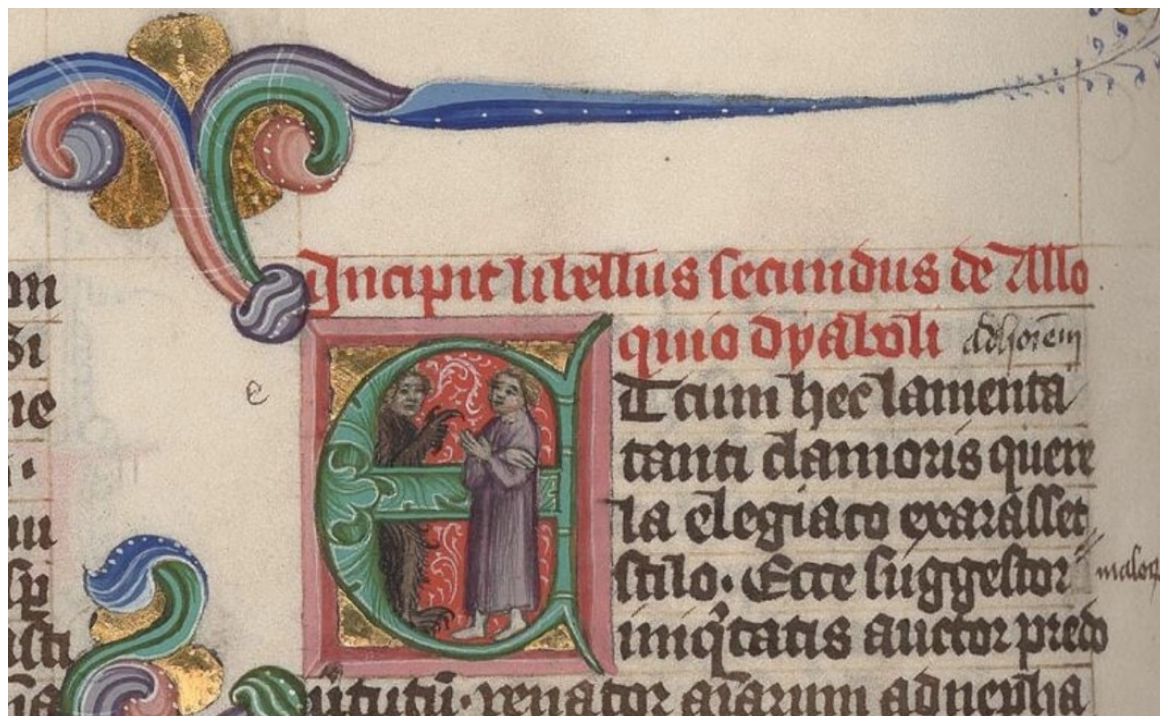 Incipit libellus secundus de Allo
quio dyaboli
ET cum hec lamenta
tanti clamoris quere
la elegiaco exarasset
stilo. Ecce suggestor
iniq̇tatis auctor predo
uenator aīarum ad nepha
e